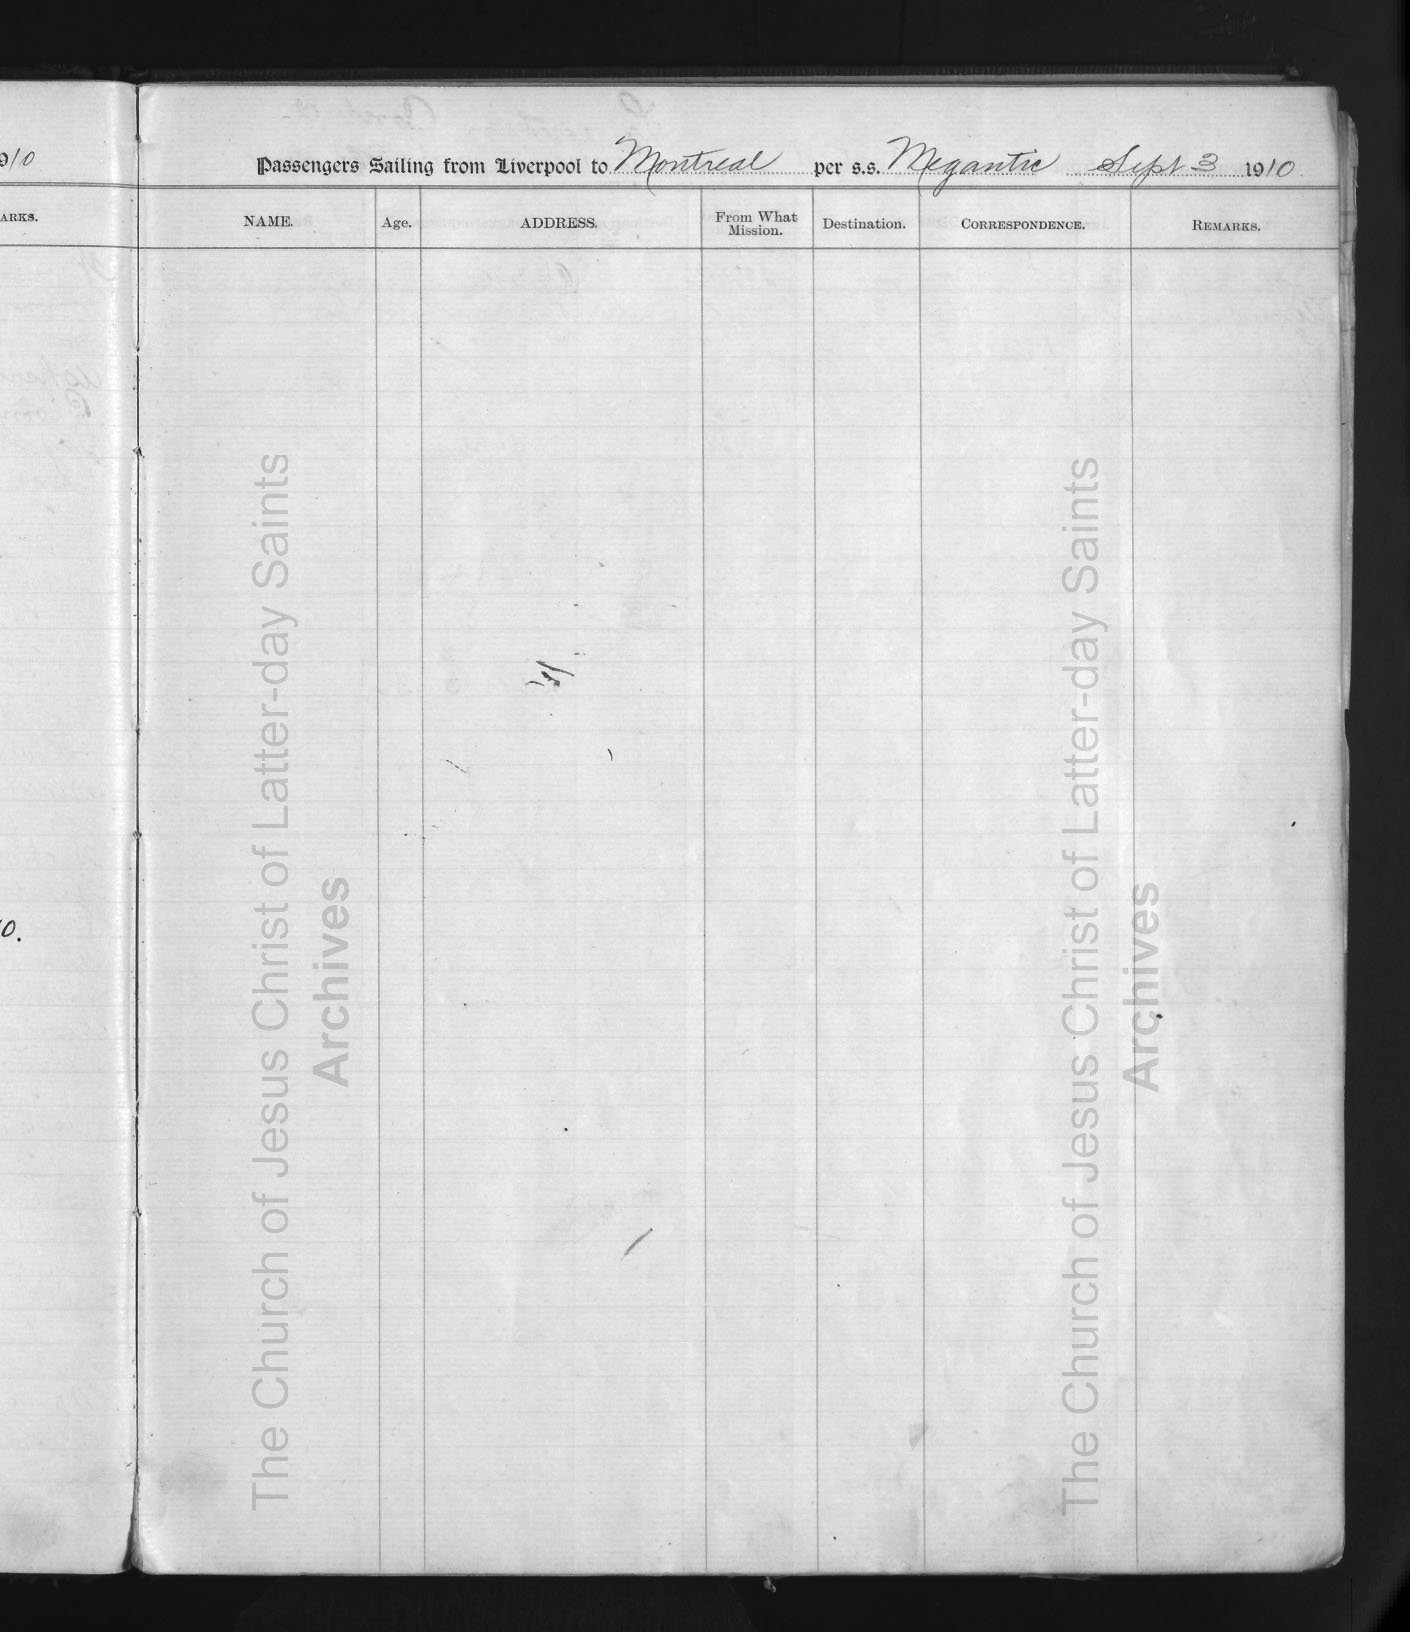 910
ARKS.
0.
Passengers Sailing from Liverpool to Montreal per s.s. Megantic Sept 3 1910
NAME. Age. ADDRESS. From What Mission. Destination. CORRESPONDENCE. REMARKS.
The Church of Jesus Christ of Latter-day Saints
Archives
The Church of Jesus Christ of Latter-day Saints
Archives